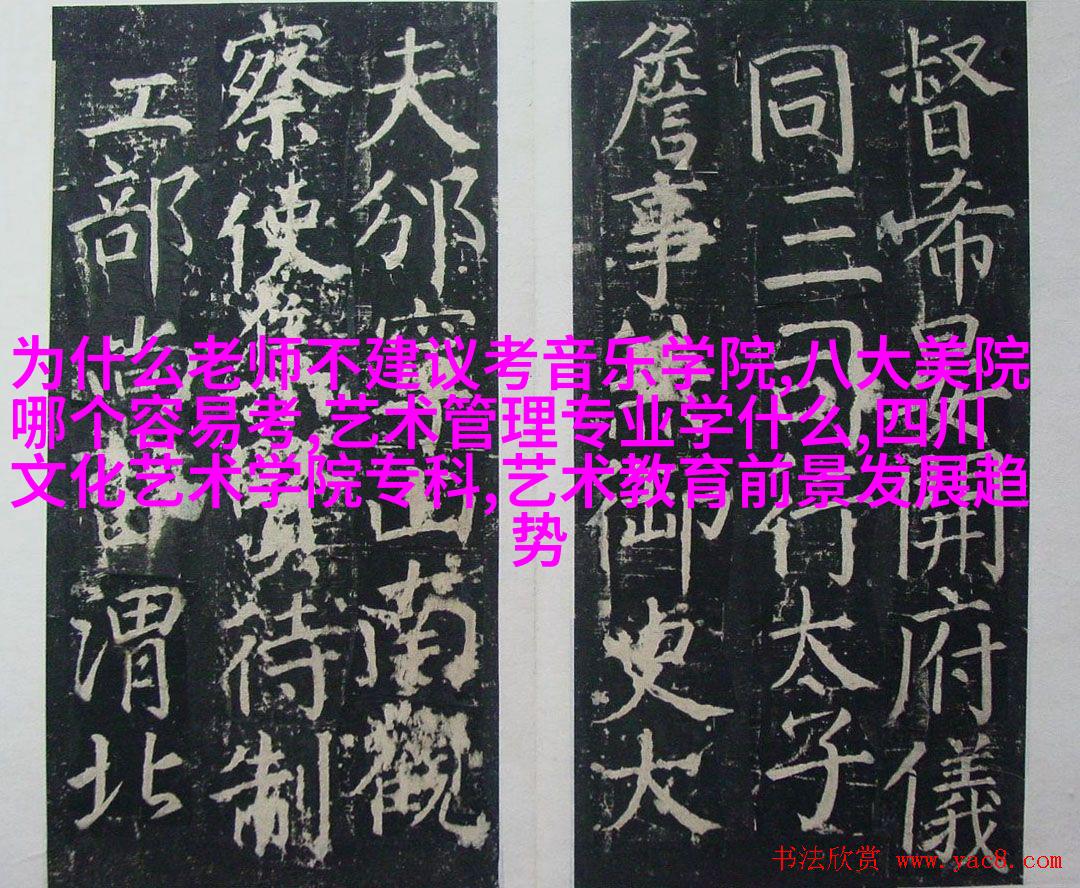 为什么老师不建议考音乐学院,八大美院
哪个容易考,艺术管理专业学什么,四川
文化艺术学院专科,艺术教育前景发展趋
势
督希開府儀
同三司行太子
詹事御史大
夫邠山南觀
察使待制
工部尚書渭北
书法欣赏 www.yac8.com